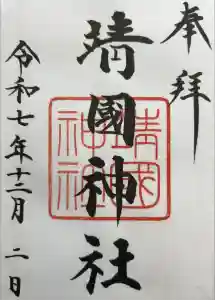 奉拜
靖國神社
靖國
神社
令和七年十二月二日